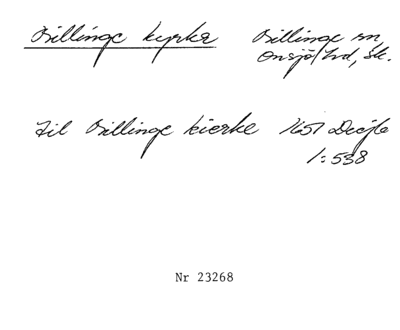 Billinge kyrka
Billinge sn,
Onsjö hd, Sk.
Til Billinge kierke 1651 Decjb
1:538
Nr 23268